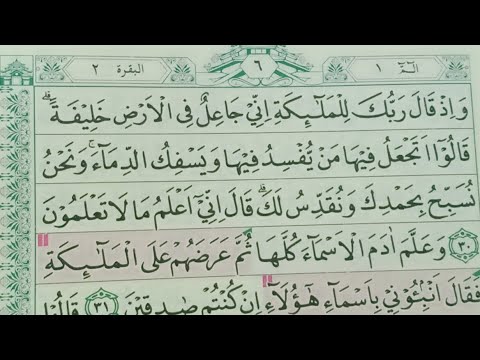 الٓمّٓ ١
٦
البقرة ٢
وَاِذْ قَالَ رَبُّكَ لِلْمَلٰۤىِٕكَةِ اِنِّيْ جَاعِلٌ فِى الْاَرْضِ خَلِيْفَةً ۗ
قَالُوْٓا اَتَجْعَلُ فِيْهَا مَنْ يُّفْسِدُ فِيْهَا وَيَسْفِكُ الدِّمَاۤءَ ۚ وَنَحْنُ
نُسَبِّحُ بِحَمْدِكَ وَنُقَدِّسُ لَكَ ۗ قَالَ اِنِّيْٓ اَعْلَمُ مَا لَا تَعْلَمُوْنَ
٣٠ وَعَلَّمَ اٰدَمَ الْاَسْمَاۤءَ كُلَّهَا ثُمَّ عَرَضَهُمْ عَلَى الْمَلٰۤىِٕكَةِ
فَقَالَ اَنْۢبِـُٔوْنِيْ بِاَسْمَاۤءِ هٰٓؤُلَاۤءِ اِنْ كُنْتُمْ صٰدِقِيْنَ ٣١ قَالُوْا